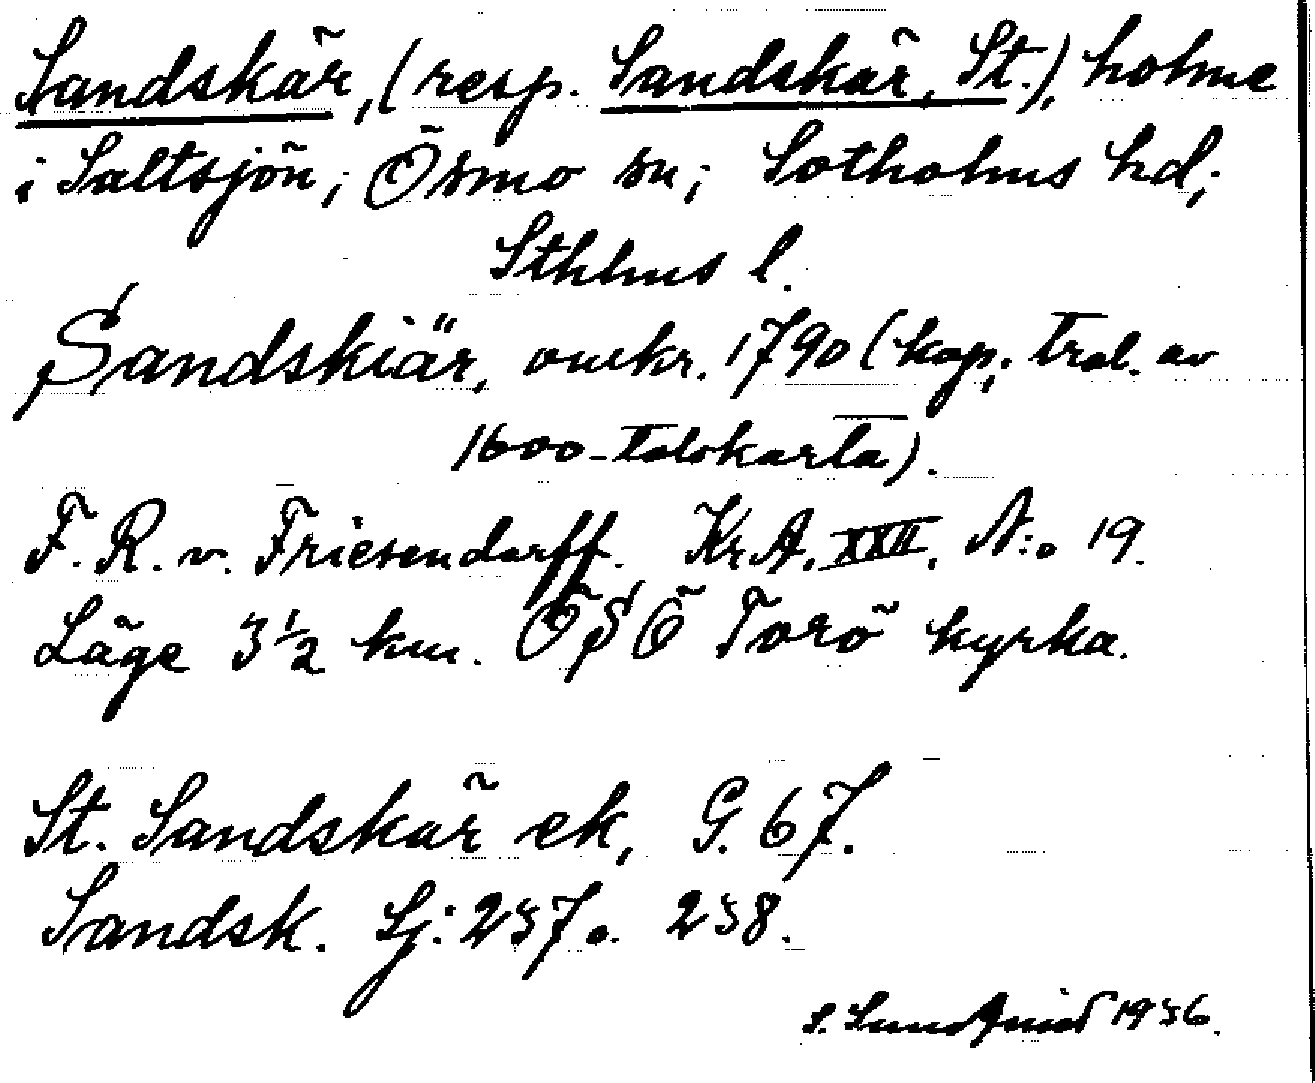 Sandskär, (resp. Sandskär, St.), holme
i Saltsjön; Ösmo sn; Sotholms hd;
Sthlms l.
Sandskiär, omkr. 1790 (kop. trol. av
1600-talskarta).
F. R. v. Friesendorff. Kr.A. XXII. N:o 19.
Läge 3 1/2 km. ÖSÖ Torö kyrka.
St. Sandskär ek, G. 67.
Sandsk. Sj: 237 o. 238.
S. Lundqvist 1936.